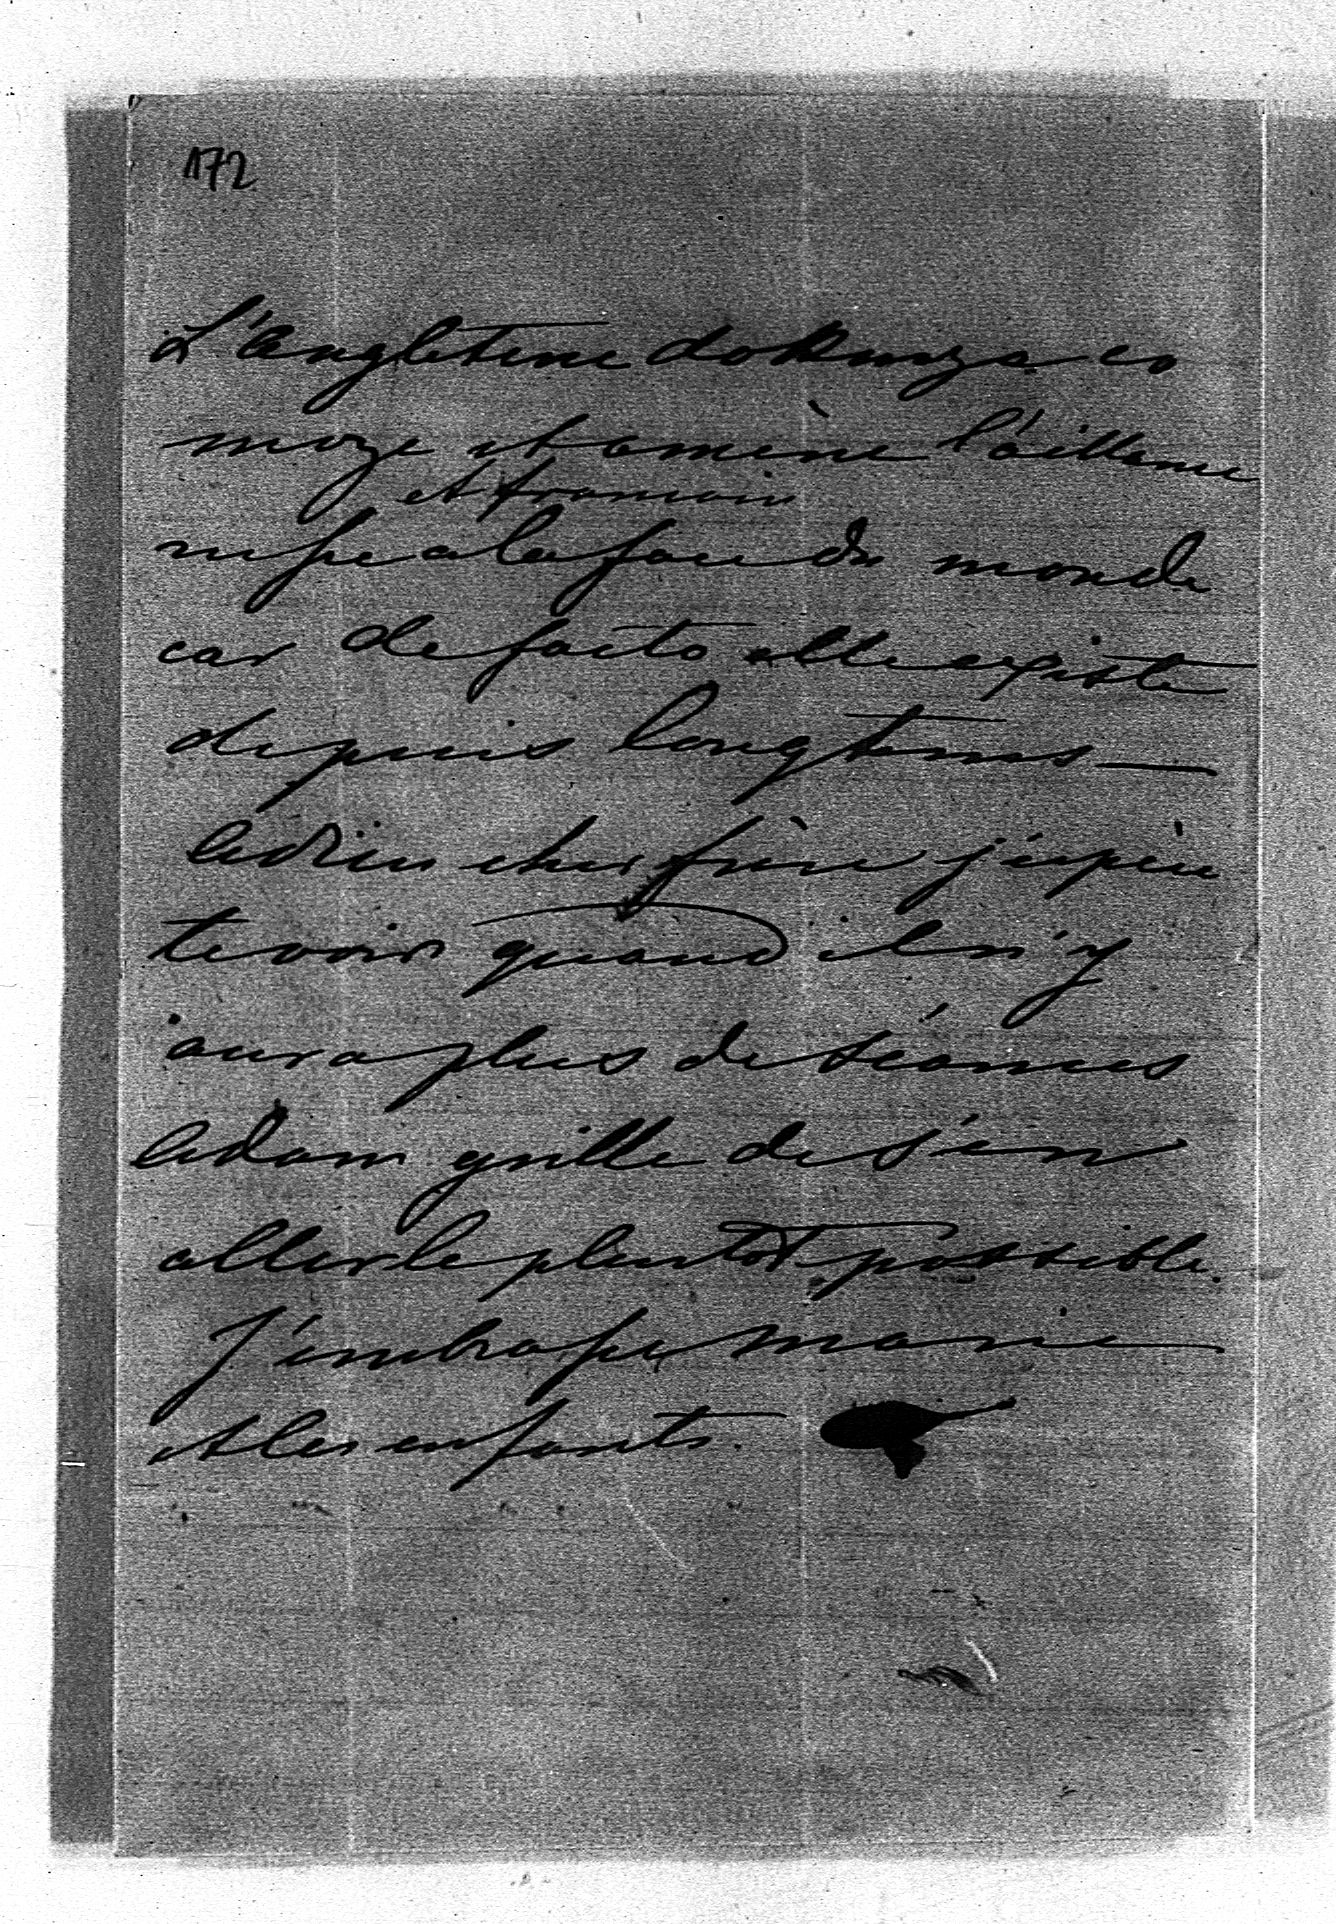 172
L'Angleterre dokazuje co
moze et amène l'aillance
et francais
russe a la face du monde
car de facto elle existe
depuis longtems —
Adieu cher frère j'espère
te voir quand il n'y
aura plus de séances
Adam grille de s'en
aller le plustot possible.
J'embrasse Marie
et les enfants.